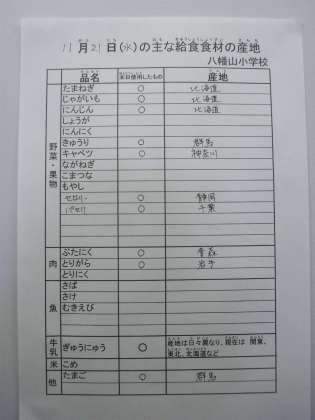 11月21日(水)の主な給食食材の産地
八幡山小学校
品名 本日使用したもの 産地
野菜・果物
たまねぎ ○ 北海道
じゃがいも ○ 北海道
にんじん ○ 北海道
しょうが
にんにく
きゅうり ○ 群馬
キャベツ ○ 神奈川
ながねぎ
こまつな
もやし
セロリー ○ 静岡
パセリ ○ 千葉
肉
ぶたにく ○ 青森
とりがら ○ 岩手
とりにく
魚
さば
さけ
むきえび
牛乳 ぎゅうにゅう ○ 産地は日々異なり、現在は 関東、
東北、北海道など
米 こめ
他 たまご ○ 群馬